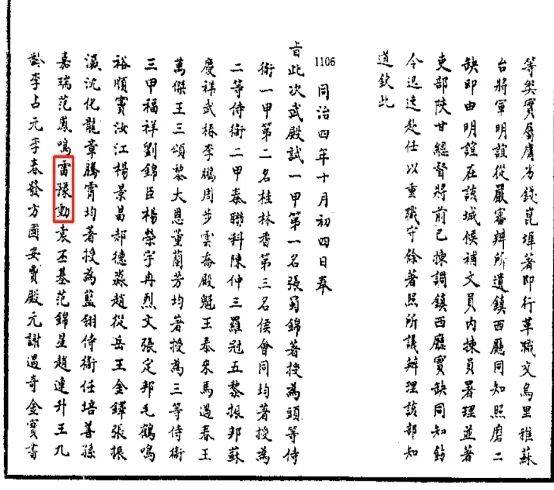 等實屬劣錢埠著即行革職交烏里雅蘇
台將軍明誼從嚴審辦所遺鎮西廳同知照磨二
缺即由明誼在該城候補文員內揀員署理並著
吏部陝甘總督將前已揀調鎮西廳實缺同知飭
令迅速赴任以重職守餘著照所議辦理該部知
道欽此
1106 同治四年十月初四日奉
旨此次武殿試一甲第一名張蜀錦著授為頭等侍
衛一甲第二名桂林香第三名侯會同均著授為
二等侍衛二甲秦聯科陳仲三羅冠五黎振邦蘇
慶祥武椿李鵬周步雲喬殿魁王泰來馬遇春王
萬傑王三頌黎大恩董蘭芳均著授為三等侍衛
三甲福祥劉錦臣楊榮宇冉烈文張定邦毛鶴鳴
裕順賈汝江楊景昌郝德淼趙從岳王金鐸張振
瀛沉化龍章騰霄均著授為藍翎侍衛任培善孫
嘉瑞范鳳鳴雷張勳袁丕基范錦星趙連升王九
齡李占元李春發方國安賈殿元謝遇奇金寶書